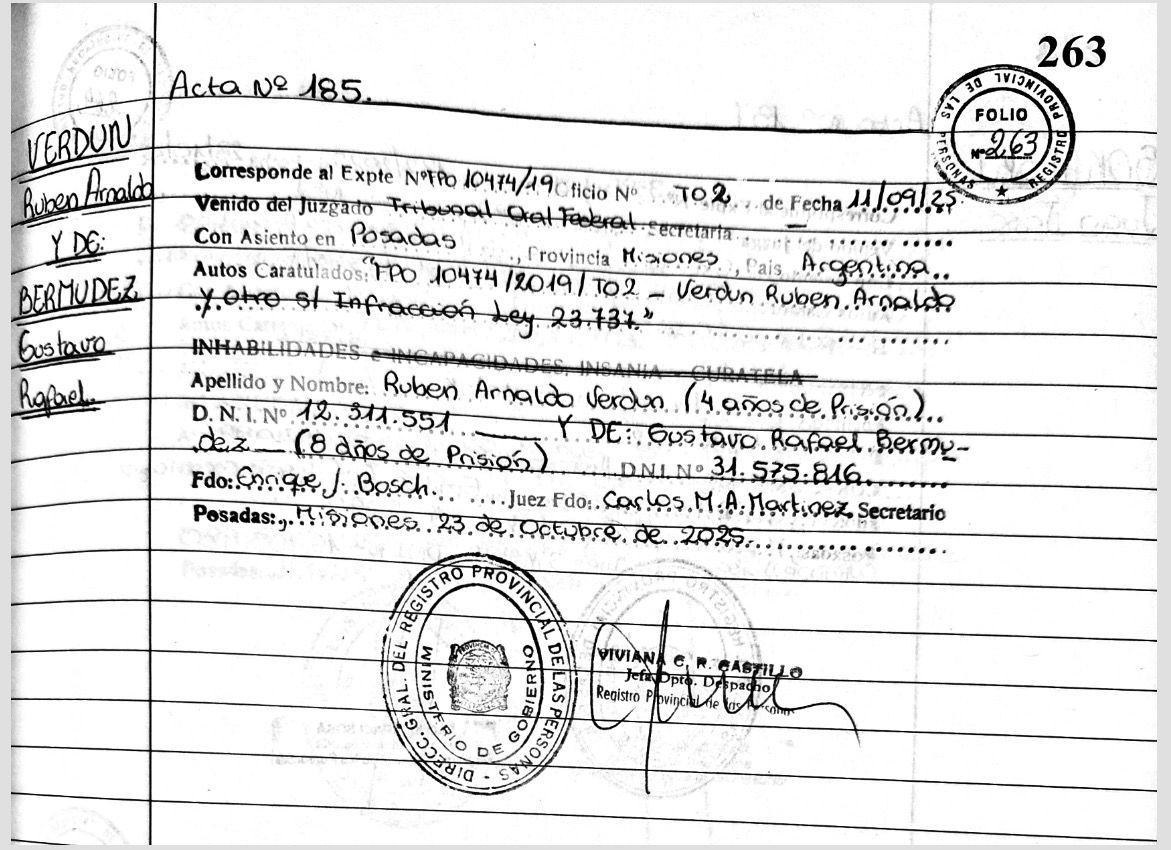 263
PROVINCIAL DE LAS PERSONAS REGISTRO
FOLIO
Nº 263
Acta Nº 185.
VERDUN
Ruben Arnaldo
Y DE:
BERMUDEZ
Gustavo
Rafael.
Corresponde al Expte Nº FPO 10474/19 Oficio Nº TO2 de Fecha 11/09/25
Venido del Juzgado Tribunal Oral Federal Secretaria —
Con Asiento en Posadas, Provincia Misiones, Pais Argentina
Autos Caratulados: "FPO 10474/2019/TO2 – Verdun Ruben Arnaldo
y otro s/ Infracción Ley 23.737"
INHABILIDADES e INCAPACIDADES, INSANIA - CURATELA
Apellido y Nombre: Ruben Arnaldo Verdun (4 años de Prisión)
D. N. I. Nº 12.311.551 — Y DE: Gustavo Rafael Bermu-
dez — (8 años de Prisión) D.N.I. Nº 31.575.816
Fdo: Enrique J. Bosch Juez Fdo: Carlos M. A. Martinez Secretario
Posadas:, Misiones 23 de Octubre de 2025.
DIRECC. GRAL. DEL REGISTRO PROVINCIAL DE LAS PERSONAS -
MINISTERIO DE GOBIERNO
VIVIANA C. R. CASTILLO
Jefa Dpto. Despacho
Registro Provincial de las Personas